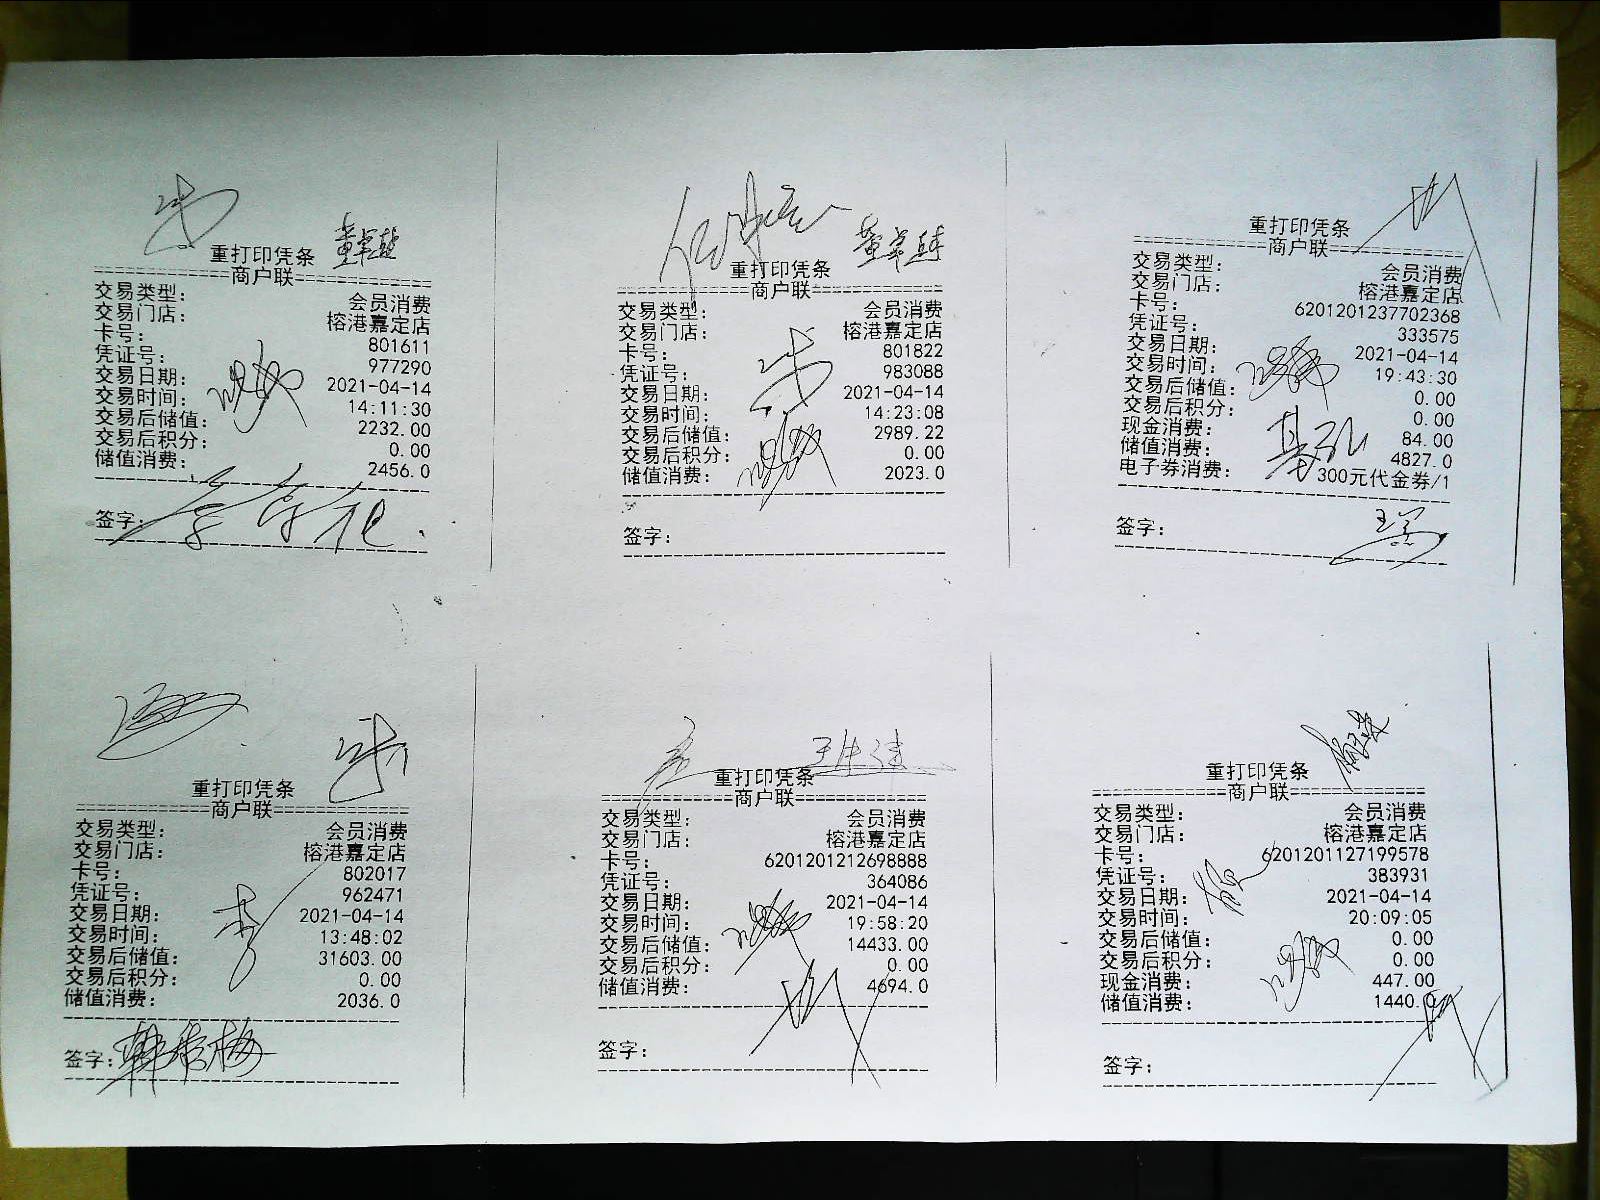 重打印凭条
==============商户联==============
交易类型: 会员消费
交易门店: 榕港嘉定店
卡号: 801611
凭证号: 977290
交易日期: 2021-04-14
交易时间: 14:11:30
交易后储值: 2232.00
交易后积分: 0.00
储值消费: 2456.0
签字:
董卓越
重打印凭条
==============商户联==============
交易类型: 会员消费
交易门店: 榕港嘉定店
卡号: 801822
凭证号: 983088
交易日期: 2021-04-14
交易时间: 14:23:08
交易后储值: 2989.22
交易后积分: 0.00
储值消费: 2023.0
签字:
重打印凭条
==============商户联==============
交易类型: 会员消费
交易门店: 榕港嘉定店
卡号: 6201201237702368
凭证号: 333575
交易日期: 2021-04-14
交易时间: 19:43:30
交易后储值: 0.00
交易后积分: 0.00
现金消费: 84.00
储值消费: 4827.0
电子券消费: 300元代金券/1
签字:
重打印凭条
==============商户联==============
交易类型: 会员消费
交易门店: 榕港嘉定店
卡号: 802017
凭证号: 962471
交易日期: 2021-04-14
交易时间: 13:48:02
交易后储值: 31603.00
交易后积分: 0.00
储值消费: 2036.0
签字: 韩秀梅
重打印凭条
==============商户联==============
交易类型: 会员消费
交易门店: 榕港嘉定店
卡号: 6201201212698888
凭证号: 364086
交易日期: 2021-04-14
交易时间: 19:58:20
交易后储值: 14433.00
交易后积分: 0.00
储值消费: 4694.0
签字:
重打印凭条
==============商户联==============
交易类型: 会员消费
交易门店: 榕港嘉定店
卡号: 6201201127199578
凭证号: 383931
交易日期: 2021-04-14
交易时间: 20:09:05
交易后储值: 0.00
交易后积分: 0.00
现金消费: 447.00
储值消费: 1440.0
签字: